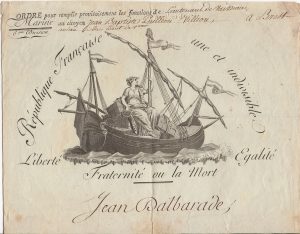 ORDRE pour remplir provisoirement les fonctions de Lieutenant de Vaisseau
Marine au citoyen Jean Baptiste à Brest
République Française une et indivisible
Liberté Egalité
Fraternité ou la Mort
Jean Dalbarade,